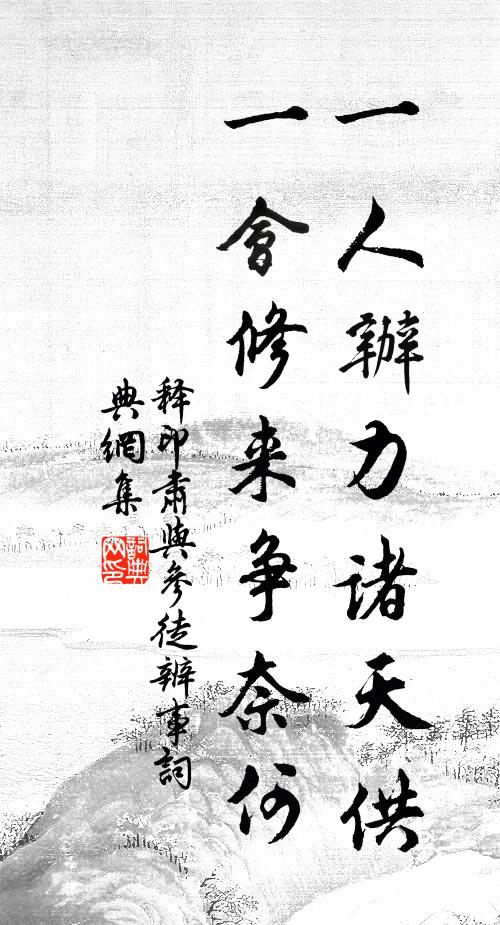 一人辦力諸天供
一會修来争奈何
释印肃與參徒辦事詞
典網集
詞典
网印